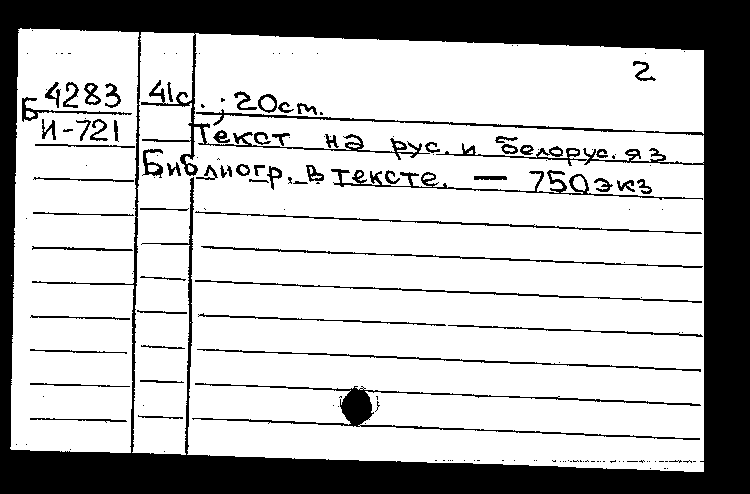 2
Б 4283 41с. ; 20cm.
И-721 Текст на рус. и белорус. яз
Библиогр. в тексте. — 750 экз